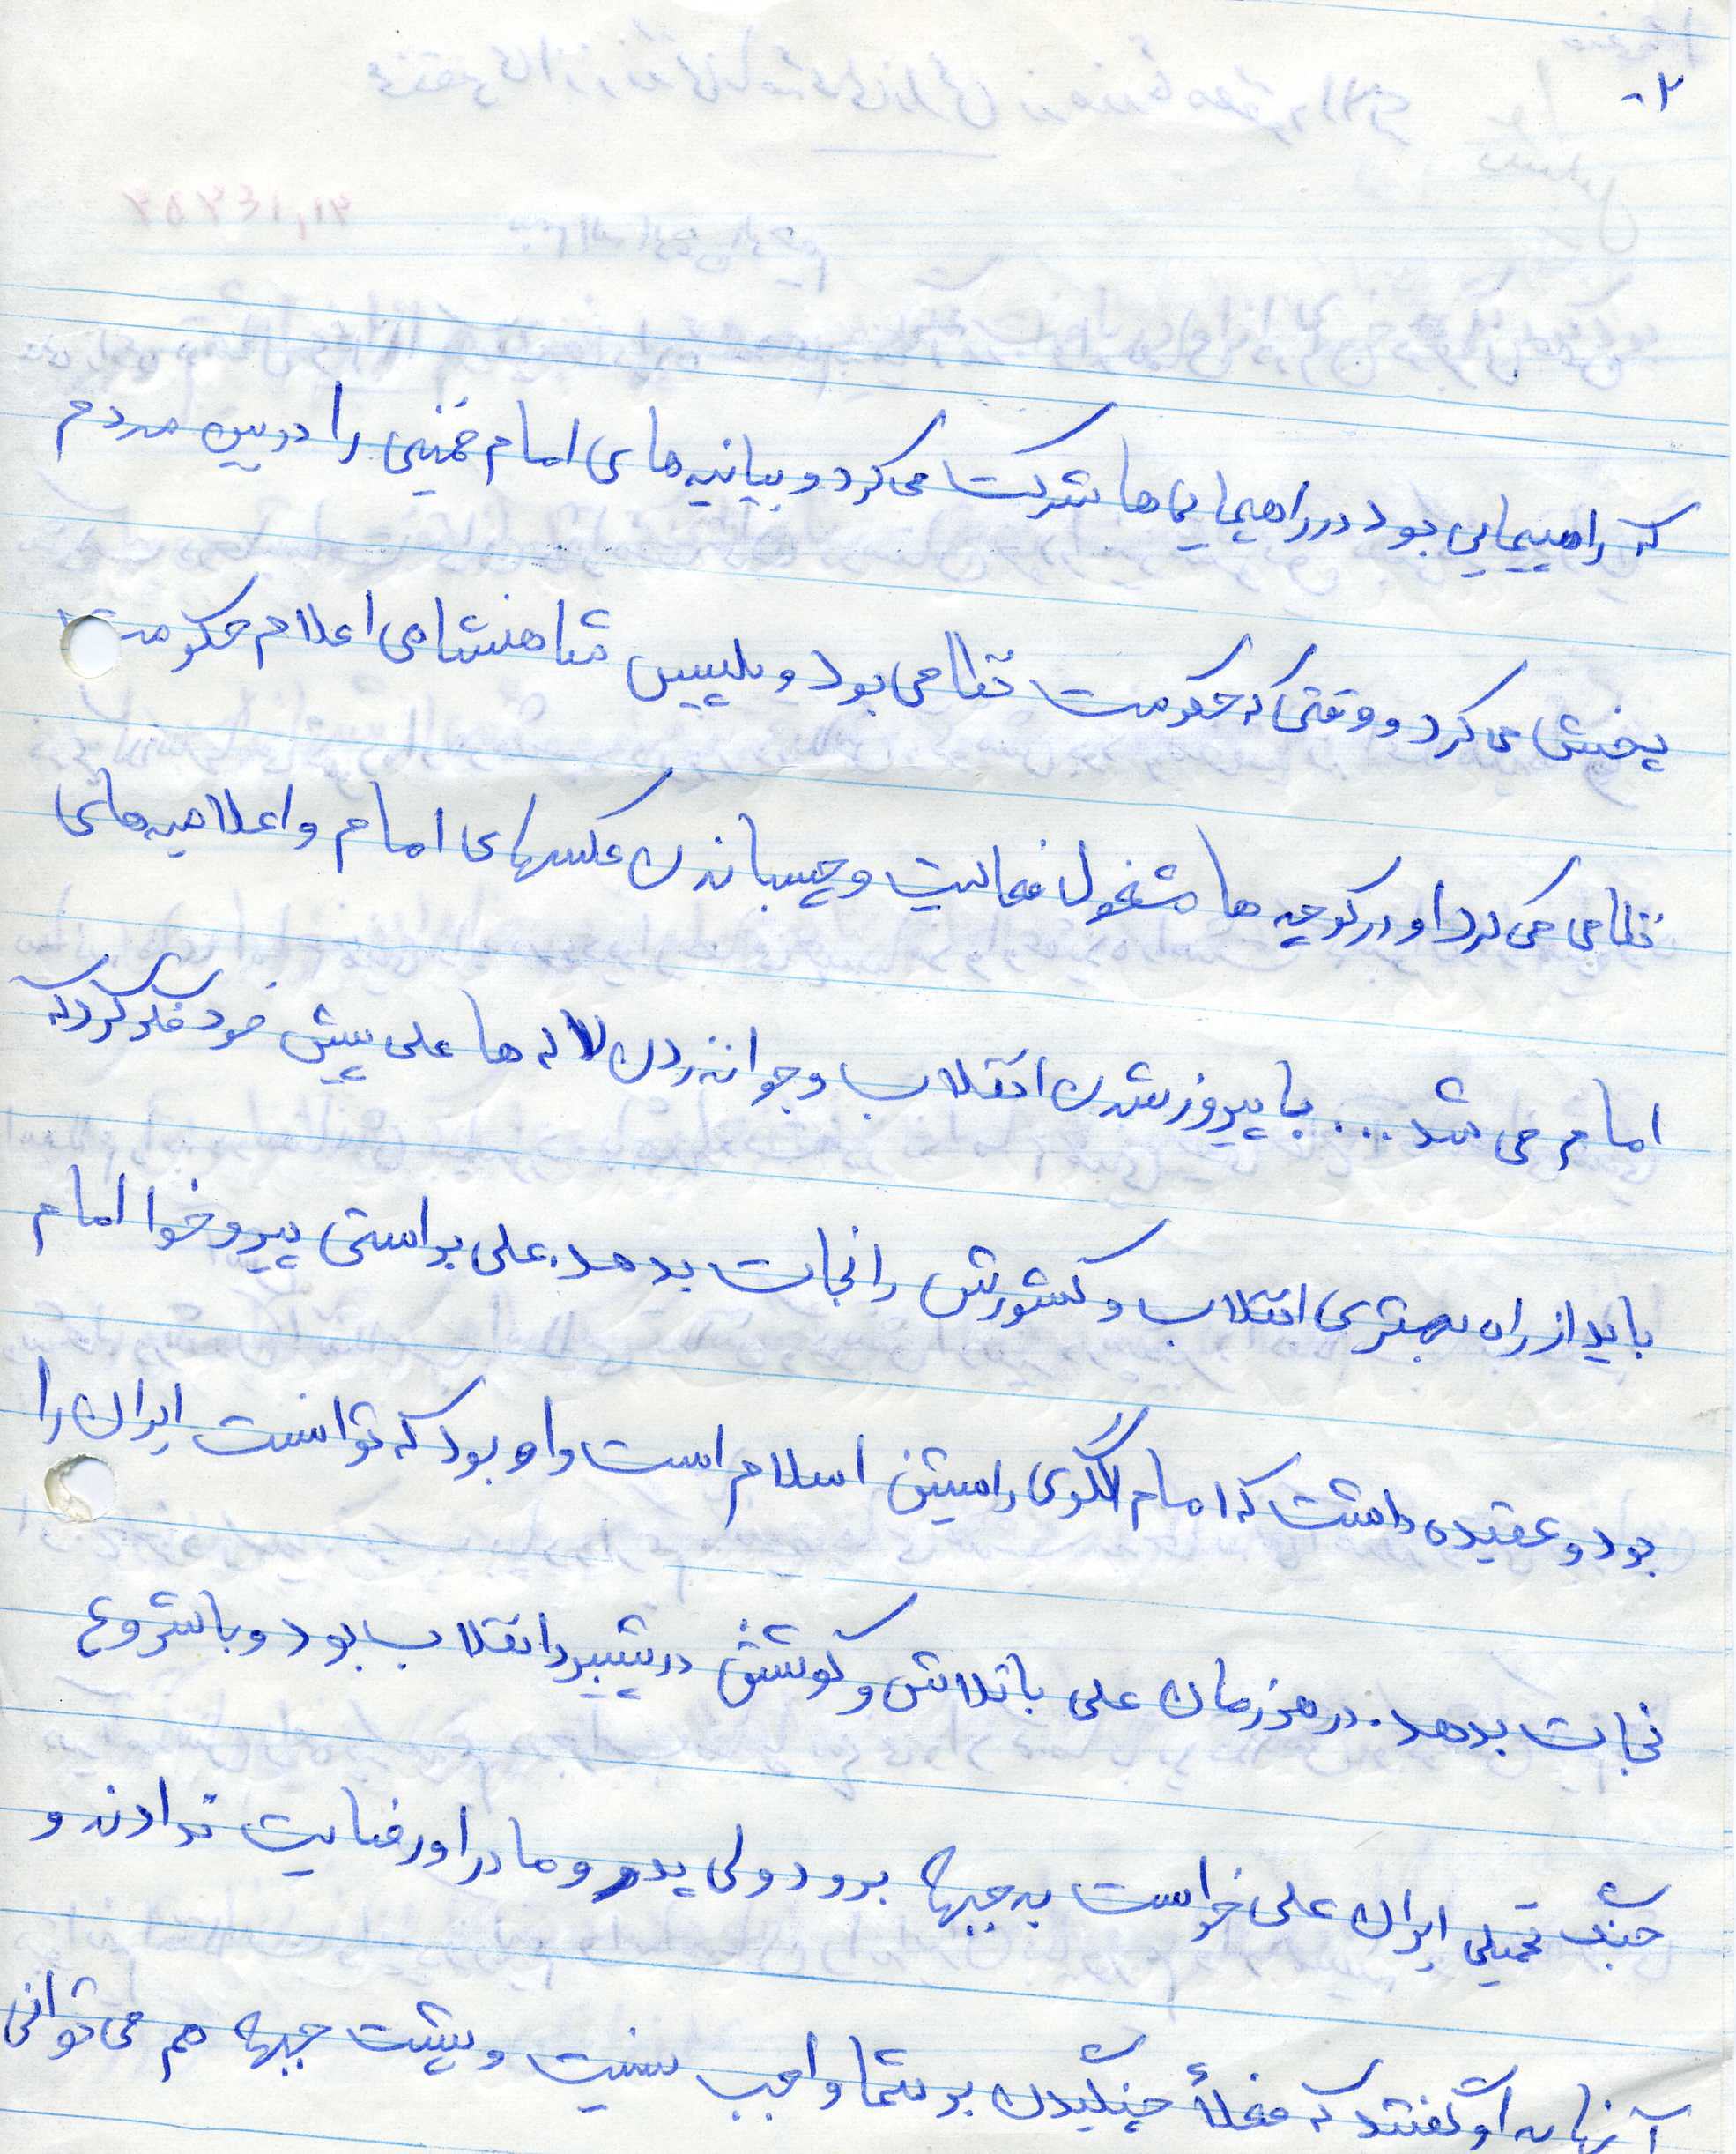 ۲-
که راهپیمایی بود در راهپیمایی‌ها شرکت می‌کرد و بیانیه‌های امام خمینی را در بین مردم
پخش می‌کرد و وقتی که حکومت نظامی بود و پلیس شاهنشاهی اعلام حکومت
نظامی می‌کرد او در کوچه ها مشغول فعالیت و چسباندن عکسهای امام و اعلامیه‌های
امام می شد ... با پیروز شدن انقلاب و جوانه زدن لاله ها علی پیش خود فکر کرد که
باید از راه بهتری انقلاب و کشورش را نجات بدهد. علی براستی پیرو خوا امام
بود و عقیده داشت که امام الگوی راستین اسلام است و او بود که توانست ایران را
نجات بدهد. در هر زمان علی با تلاش و کوشش در پیشبرد انقلاب بود و با شروع
جنگ تحمیلی ایران علی خواست به جبهه برود ولی پدر و مادر او رضایت ندادند و
آنها به او گفتند که فعلاً جنگیدن بر شما واجب نیست و پشت جبهه هم می توانی